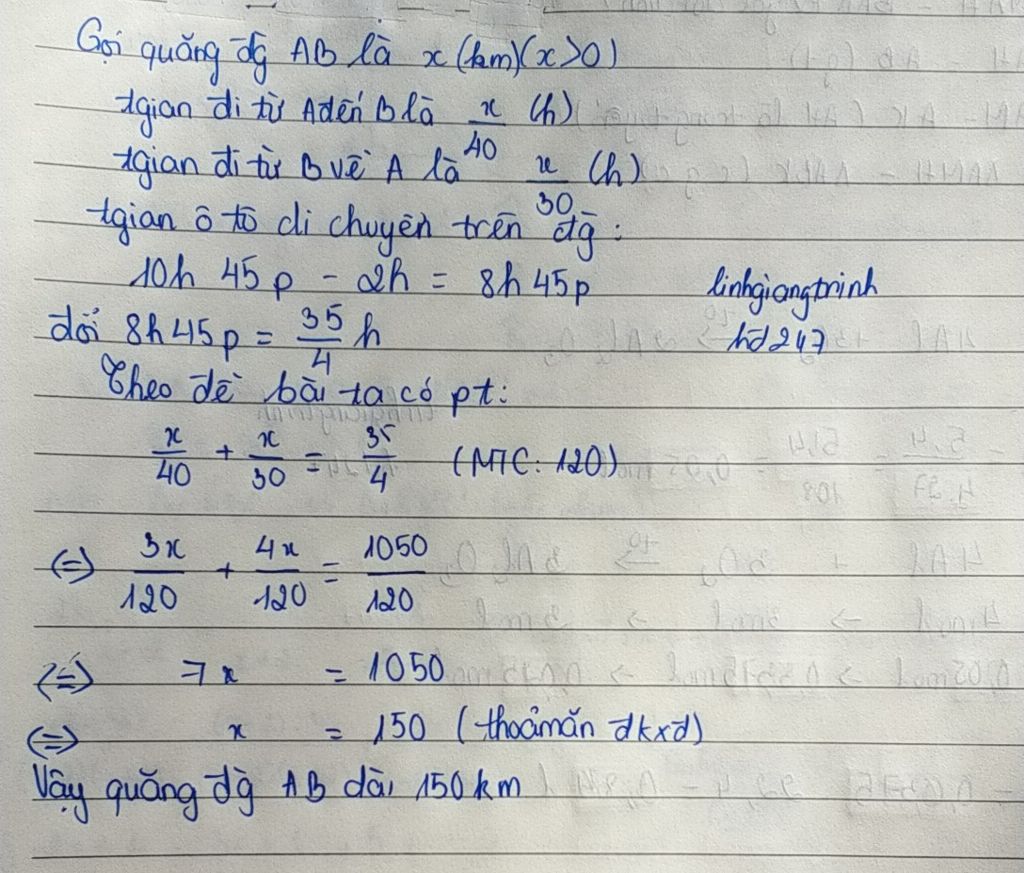 Gọi quãng đg AB là x (km)(x>0)
tgian đi từ A đến B là x/40 (h)
tgian đi từ B về A là x/30 (h)
tgian ô tô di chuyển trên đg:
10h 45p - 2h = 8h 45p
linhgiangtrinh
hd247
đổi 8h 45p = 35/4 h
Theo đề bài ta có pt:
x/40 + x/30 = 35/4 (MTC: 120)
⇔ 3x/120 + 4x/120 = 1050/120
⇔ 7x = 1050
⇔ x = 150 (thoả mãn đkxđ)
Vậy quãng đg AB dài 150 km